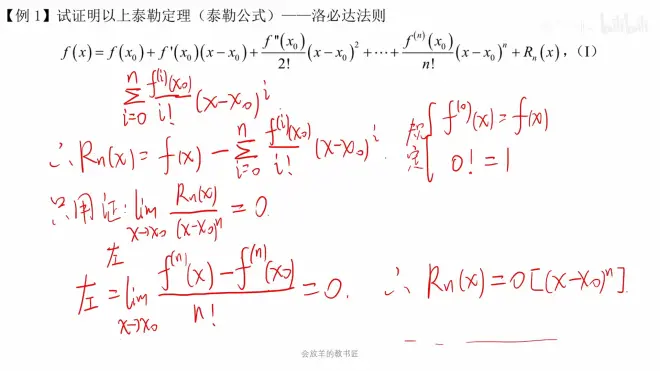 【例 1】试证明以上泰勒定理（泰勒公式）——洛必达法则
bilibili
f(x) = f(x₀) + f'(x₀)(x−x₀) + \frac{f''(x₀)}{2!}(x−x₀)² + ⋯ + \frac{f^{(n)}(x₀)}{n!}(x−x₀)ⁿ + Rₙ(x)，(I)
\sum_{i=0}^{n} \frac{f^{(i)}(x₀)}{i!}(x−x₀)^i
∴ Rₙ(x) = f(x) − \sum_{i=0}^{n} \frac{f^{(i)}(x₀)}{i!}(x−x₀)^i
规定 { f^{(0)}(x) = f(x)
0! = 1
只用证: \lim_{x→x₀} \frac{Rₙ(x)}{(x−x₀)ⁿ} = 0.
左
左 = \lim_{x→x₀} \frac{f^{(n)}(x) − f^{(n)}(x₀)}{n!} = 0.
∴ Rₙ(x) = o[(x−x₀)ⁿ].
会放羊的教书匠